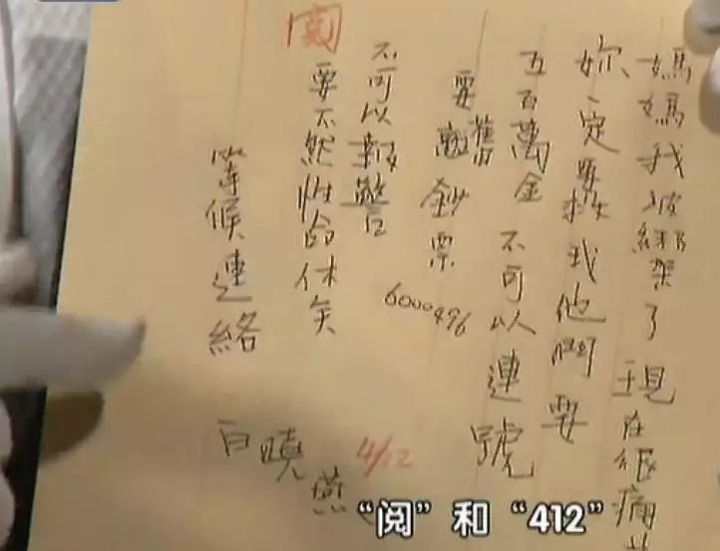 媽媽我被綁架了現在很痛
妳一定要救我他們要
五百萬金不可以連號
要舊鈔票
6000496
不可以報警
要不然性命休矣
閱
等候連絡
白曉燕
4/12
“阅”和“412”